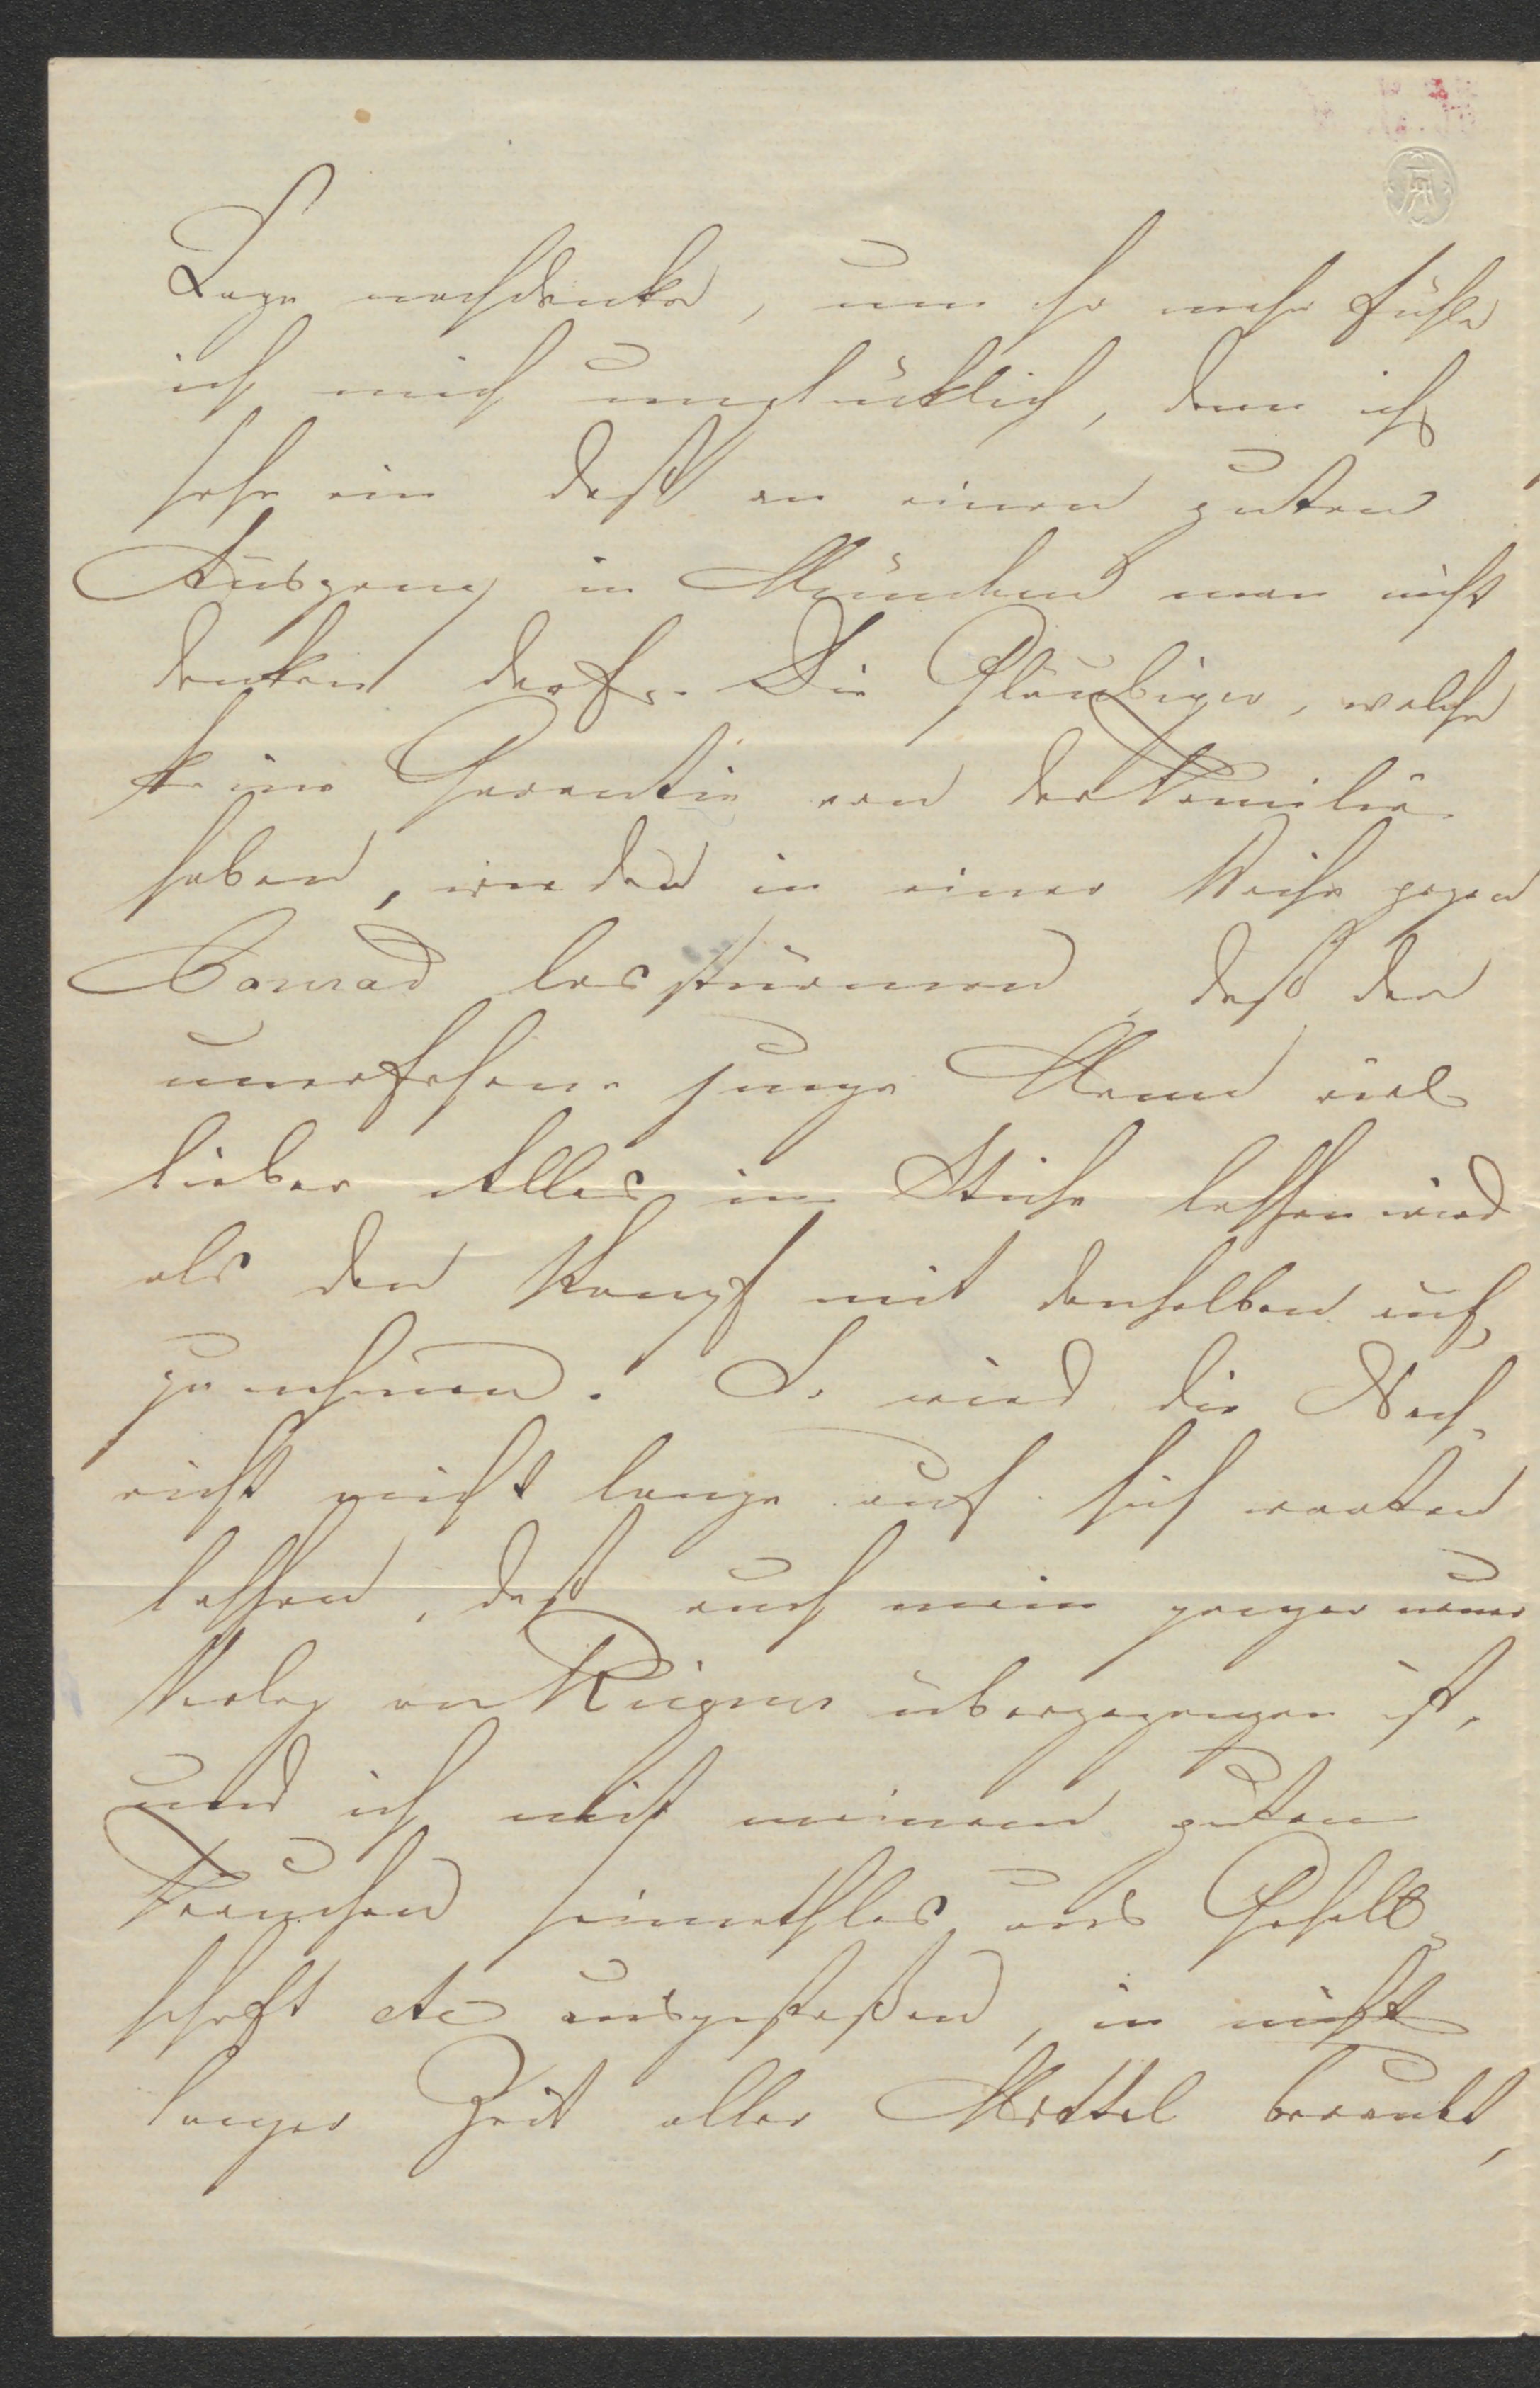 Lage nachdenke, um so mehr fühle
ich mich unglücklich, denn ich
sehe ein daß an einen guten
Ausgang in München man nicht
denken darf. Die Gläubiger, welche
keine Garantie von der Familie
haben, werden in einer Weise gegen
Conrad losstürmen, daß der
unerfahrene junge Mann viel
lieber Alles im Stiche lassen wird
als den Kampf mit denselben auf
zunehmen. So wird die Nach-
richt nicht lange auf sich warten
lassen, daß auch mein ganzer neuer
Verlag an übergegangen ist,
und ich mit meinem guten
Frauchen heimathlos aus Gesell-
schaft etc ausgestoßen, in nicht
langer Zeit aller Mittel beraubt,